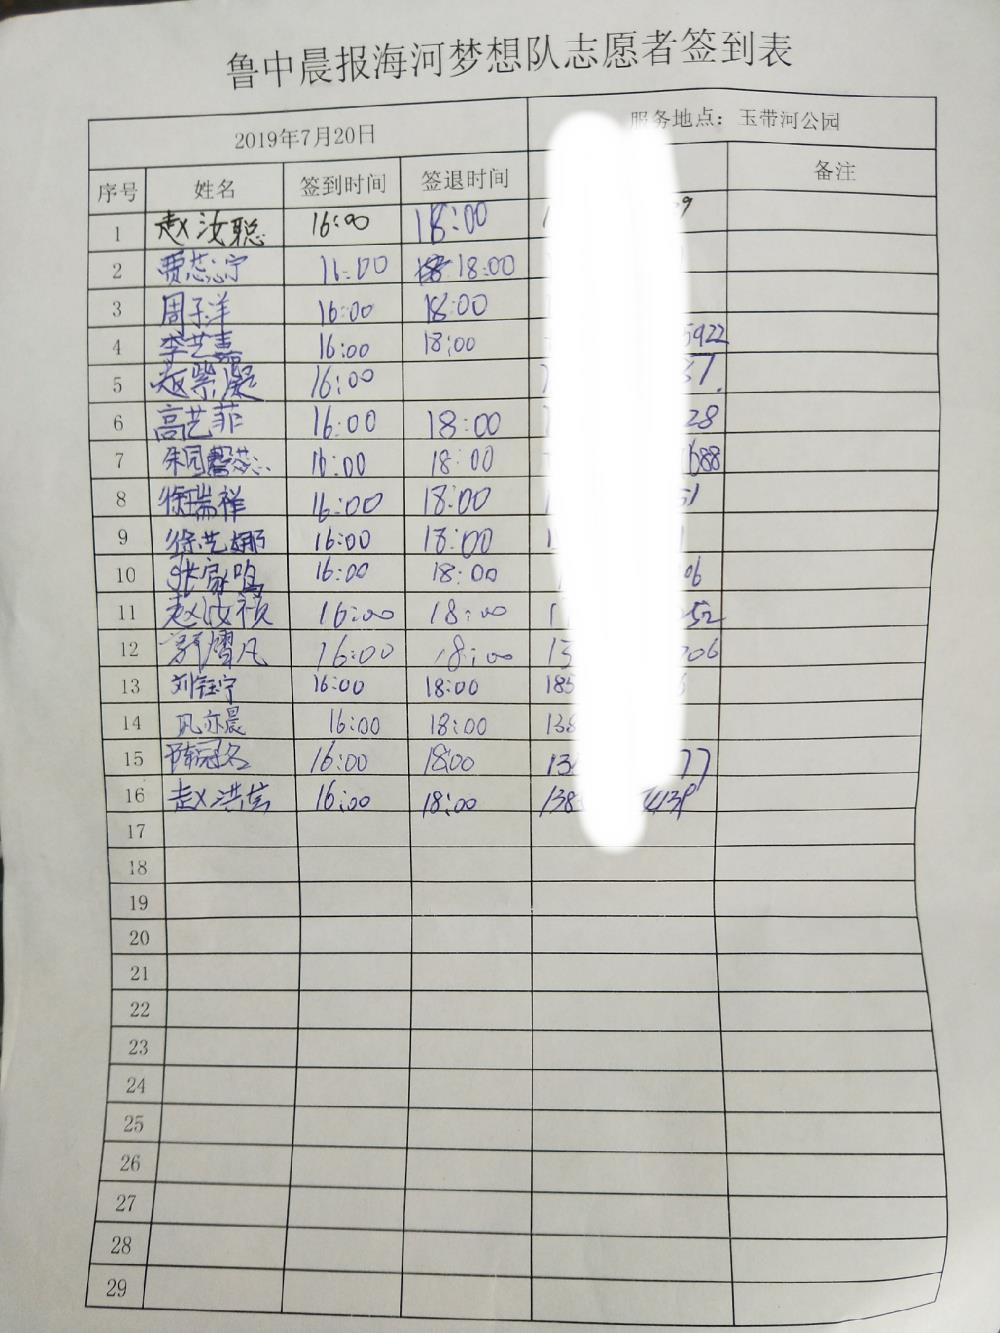 鲁中晨报海河梦想队志愿者签到表
2019年7月20日 服务地点：玉带河公园
序号 姓名 签到时间 签退时间 备注
1 赵汝聪 16:00 18:00
2 贾蕊宁 16:00 18:00
3 周子洋 16:00 18:00
4 李艺嘉 16:00 18:00 5922
5 赵紫凝 16:00
6 高艺菲 16:00 18:00 28
7 朱园馨蕊 16:00 18:00 688
8 徐瑞祥 16:00 18:00 51
9 徐艺娜 16:00 18:00
10 张家鸣 16:00 18:00 06
11 赵汝祯 16:00 18:00 52
12 16:00 18:00 13 206
13 刘钰宁 16:00 18:00 185
14 亦晨 16:00 18:00 138
15 陈冠名 16:00 18:00 13 77
16 赵洪 16:00 18:00 138
17
18
19
20
21
22
23
24
25
26
27
28
29